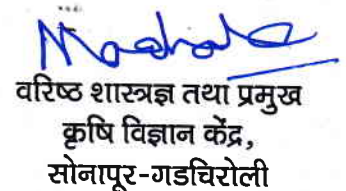 वरिष्ठ शास्त्रज्ञ तथा प्रमुख
कृषि विज्ञान केंद्र,
सोनापूर-गडचिरोली